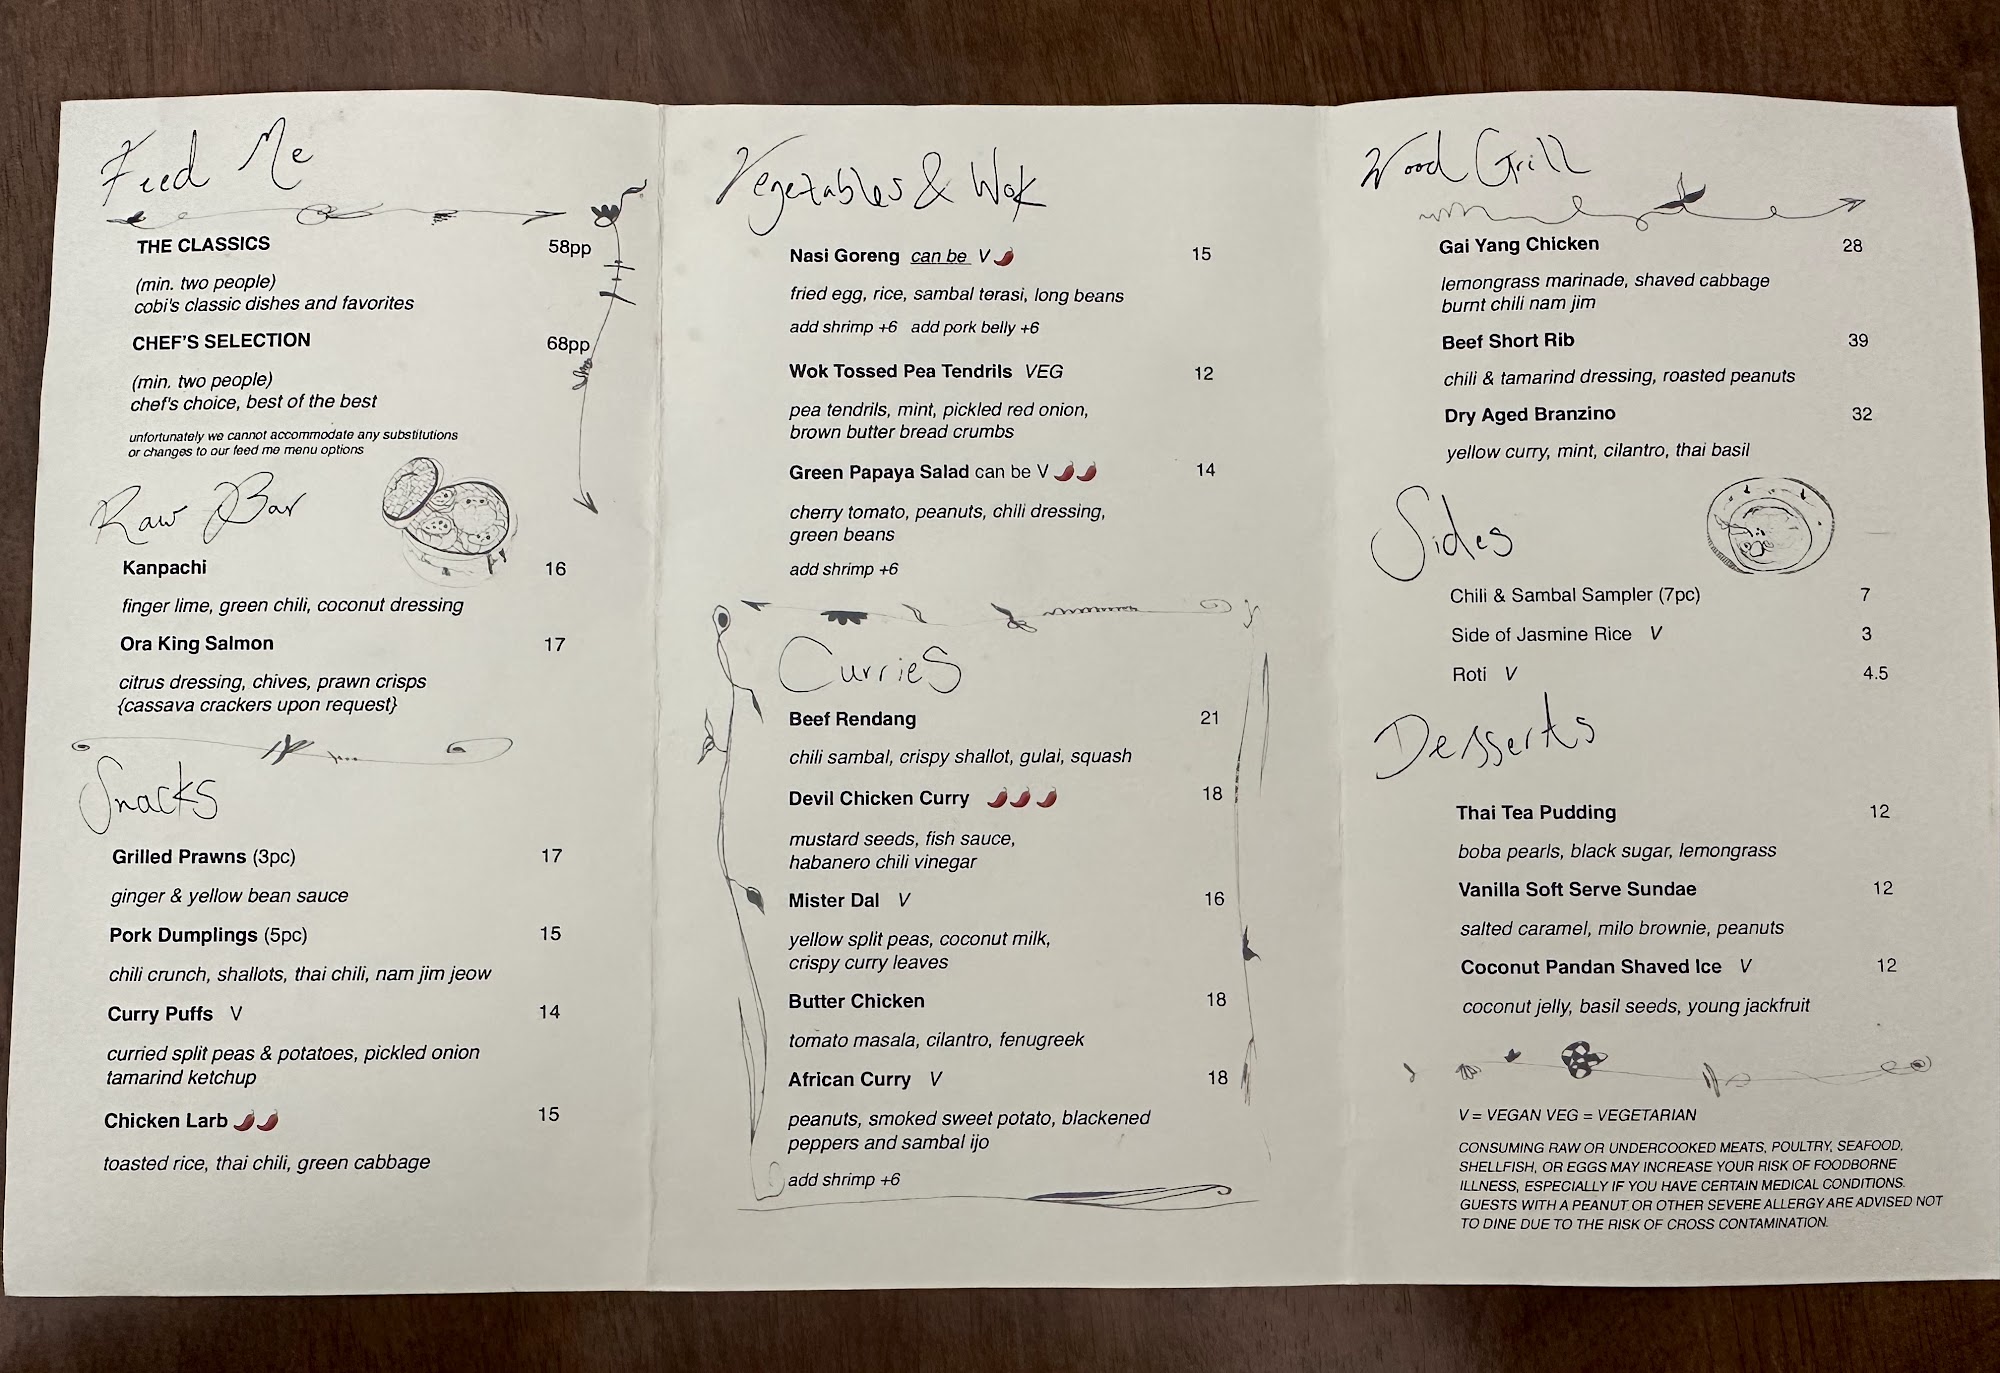 Feed Me
THE CLASSICS 58pp
(min. two people)
cobi's classic dishes and favorites
CHEF'S SELECTION 68pp
(min. two people)
chef's choice, best of the best
unfortunately we cannot accommodate any substitutions
or changes to our feed me menu options
Raw Bar
Kanpachi 16
finger lime, green chili, coconut dressing
Ora King Salmon 17
citrus dressing, chives, prawn crisps
{cassava crackers upon request}
Snacks
Grilled Prawns (3pc) 17
ginger & yellow bean sauce
Pork Dumplings (5pc) 15
chili crunch, shallots, thai chili, nam jim jeow
Curry Puffs V 14
curried split peas & potatoes, pickled onion
tamarind ketchup
Chicken Larb 🌶🌶 15
toasted rice, thai chili, green cabbage
Vegetables & Wok
Nasi Goreng can be V 🌶 15
fried egg, rice, sambal terasi, long beans
add shrimp +6 add pork belly +6
Wok Tossed Pea Tendrils VEG 12
pea tendrils, mint, pickled red onion,
brown butter bread crumbs
Green Papaya Salad can be V 🌶🌶 14
cherry tomato, peanuts, chili dressing,
green beans
add shrimp +6
Curries
Beef Rendang 21
chili sambal, crispy shallot, gulai, squash
Devil Chicken Curry 🌶🌶🌶 18
mustard seeds, fish sauce,
habanero chili vinegar
Mister Dal V 16
yellow split peas, coconut milk,
crispy curry leaves
Butter Chicken 18
tomato masala, cilantro, fenugreek
African Curry V 18
peanuts, smoked sweet potato, blackened
peppers and sambal ijo
add shrimp +6
Wood Grill
Gai Yang Chicken 28
lemongrass marinade, shaved cabbage
burnt chili nam jim
Beef Short Rib 39
chili & tamarind dressing, roasted peanuts
Dry Aged Branzino 32
yellow curry, mint, cilantro, thai basil
Sides
Chili & Sambal Sampler (7pc) 7
Side of Jasmine Rice V 3
Roti V 4.5
Desserts
Thai Tea Pudding 12
boba pearls, black sugar, lemongrass
Vanilla Soft Serve Sundae 12
salted caramel, milo brownie, peanuts
Coconut Pandan Shaved Ice V 12
coconut jelly, basil seeds, young jackfruit
V = VEGAN VEG = VEGETARIAN
CONSUMING RAW OR UNDERCOOKED MEATS, POULTRY, SEAFOOD,
SHELLFISH, OR EGGS MAY INCREASE YOUR RISK OF FOODBORNE
ILLNESS, ESPECIALLY IF YOU HAVE CERTAIN MEDICAL CONDITIONS.
GUESTS WITH A PEANUT OR OTHER SEVERE ALLERGY ARE ADVISED NOT
TO DINE DUE TO THE RISK OF CROSS CONTAMINATION.